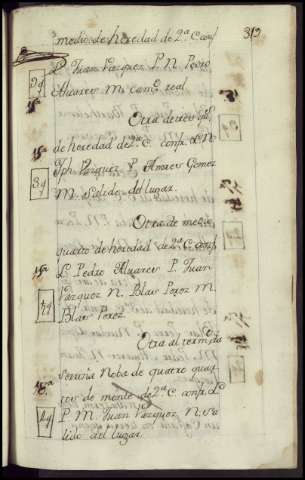 medio de heredad de 2ª conf.
319
L. Juan Vazquez P. N. Pedro
Alvarez M. camº real
Otra de tres
de heredad de 2ª C. conf. L. N.
Jph. Vazquez P. Andres Gomez
M. Salido del lugar.
Otra de medio
quarto de heredad de 2ª C. conf.
L. Pedro Alvarez P. Juan
Vazquez N. Blas Perez M.
Blas Perez
Otra al termino
de quatro quar
tos de monte de 2ª C. conf. L.
P. M. Juan Vazquez N. Sa
lido del lugar.